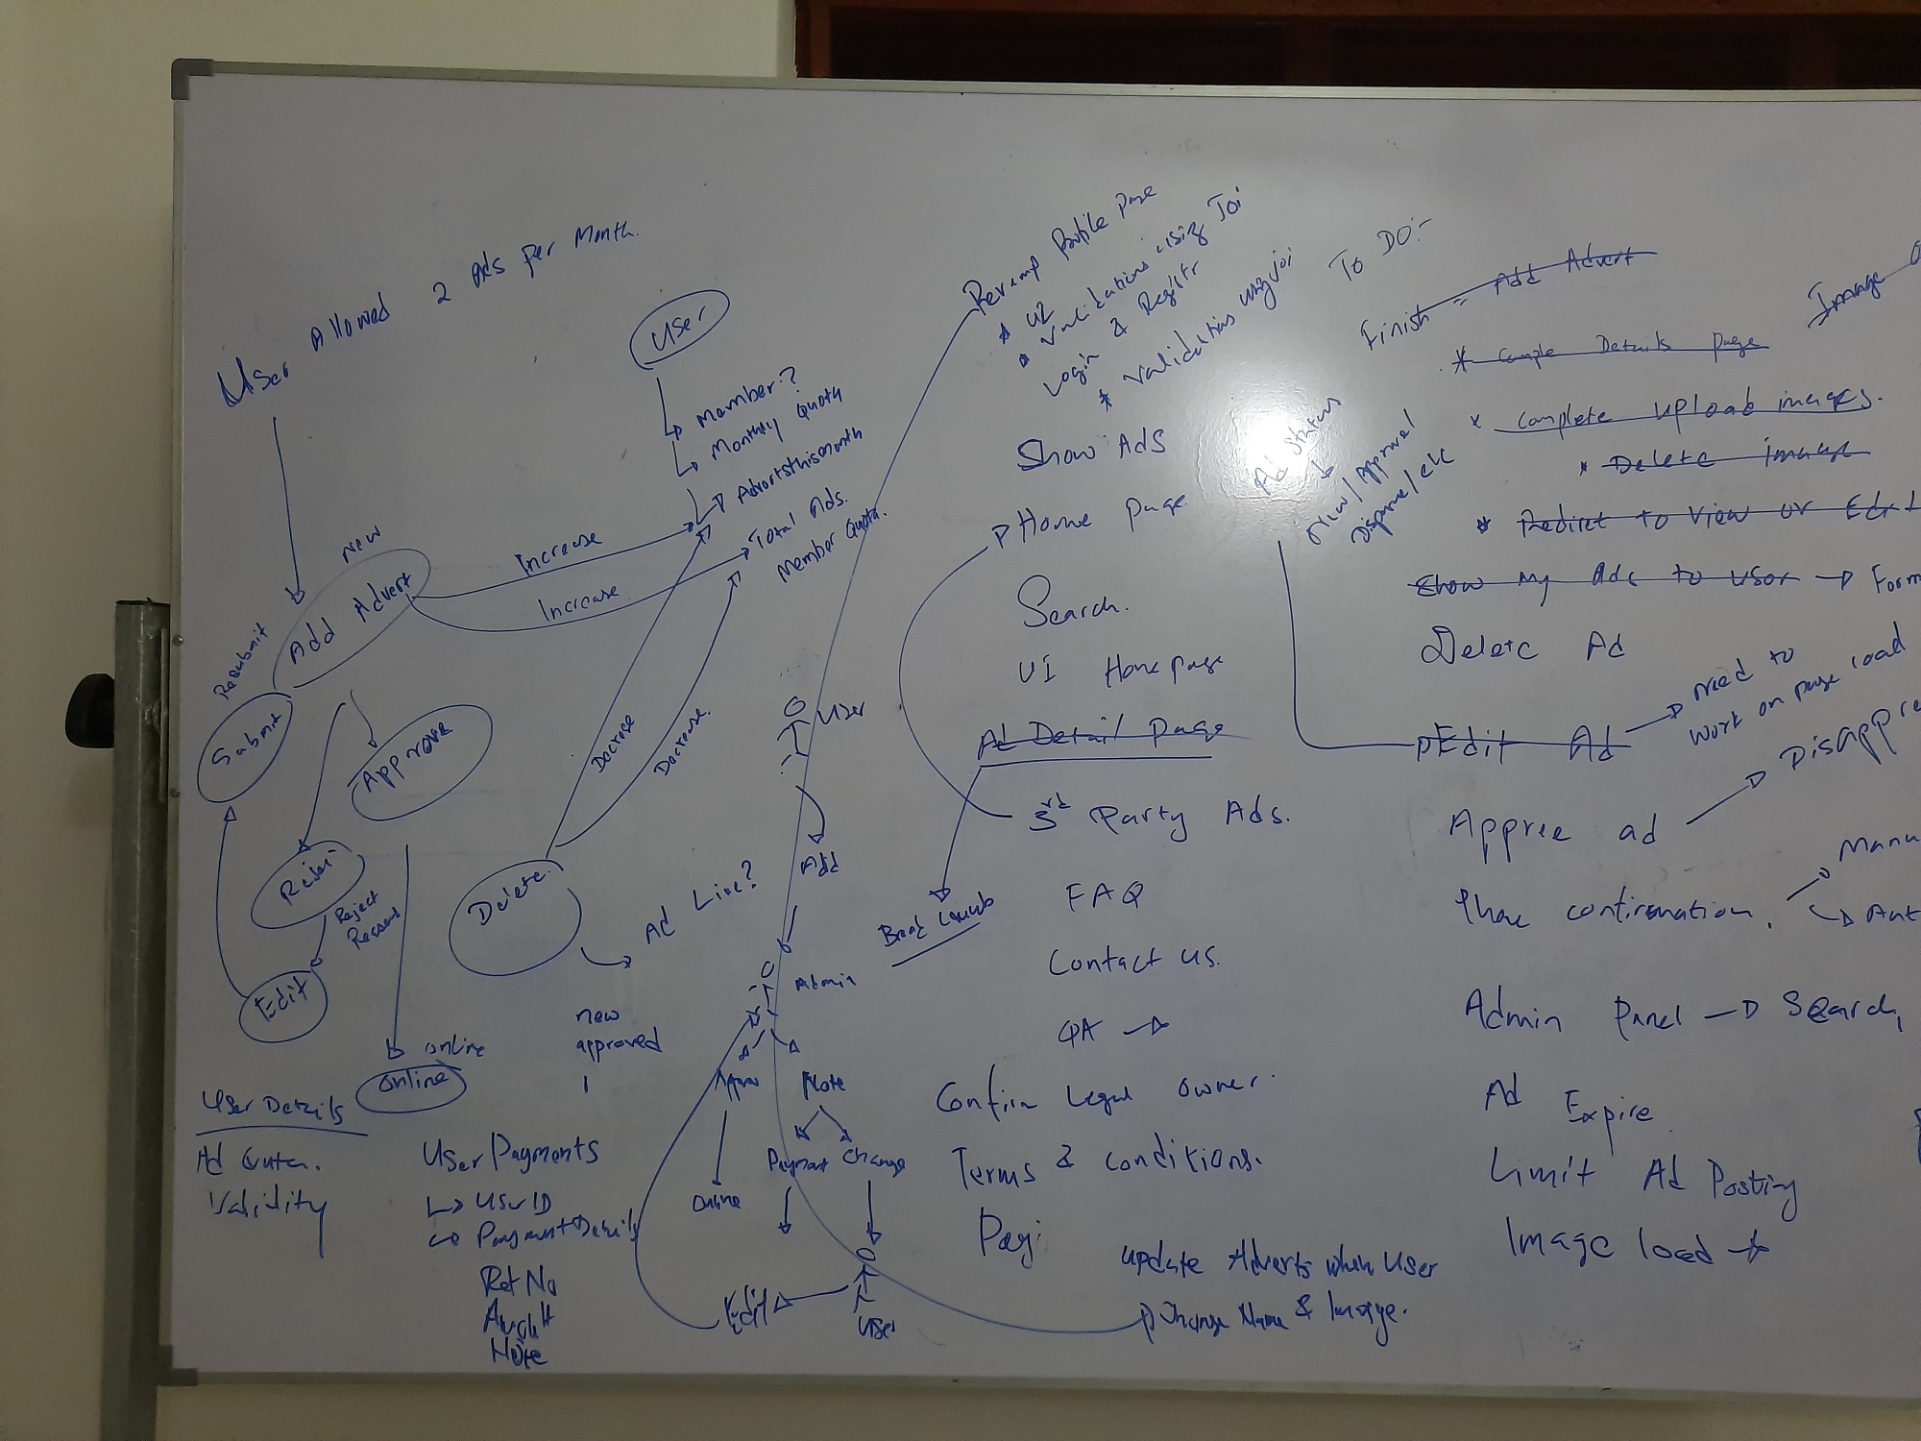 User Allowed 2 Ads per Month.
User
Member?
Monthly Quota
Advertsthismonth
Total Ads.
Member Quota.
New
Add Advert
Increase
Increase
Resubmit
Submit
Approve
Decrease
Decrease
Reject
Reason
Edit
Delete
Ad Live?
online
online
new
approved
User Details
Validity
User Payments
User ID
Payment Details
Ref No
Note
User
Add
Admin
Note
Online
Payment
Change
Edit
User
Revamp Profile Page
* UI
* Validations using Joi
Login & Registr
* Validations using joi
Show Ads
Home page
Search.
UI Homepage
Ad Detail page
3rd Party Ads.
FAQ
Contact us.
QA
Confirm Legal owner.
Terms & conditions.
Update Adverts when User
Change Name & Image.
To DO:-
Finish = Add Advert
* Comple Details page
* Complete upload images.
* Delete image
* Redirct to View or Edit
Show My Ads to User → Form
Delete Ad
Edit Ad
need to
work on page load
Ad Status
New/Approval
Disappre
ad
confirmation.
Manu
Admin Panel → Search,
Ad Expire
Limit Ad Posting
Image load →
Image